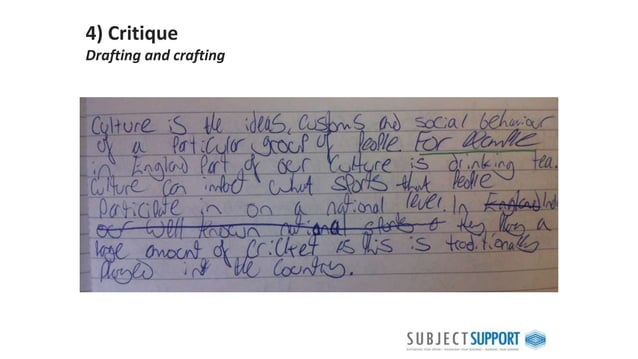 4) Critique
Drafting and crafting
Culture is the ideas, customs and social behaviour
of a particular group of people For
in England Part of our Culture is drinking tea.
Culture can what sports that People
Participate in on a national level. In England
our well known national sports they Play a
large amount of Cricket as this is traditionally
Played in the Country.
SUBJECTSUPPORT